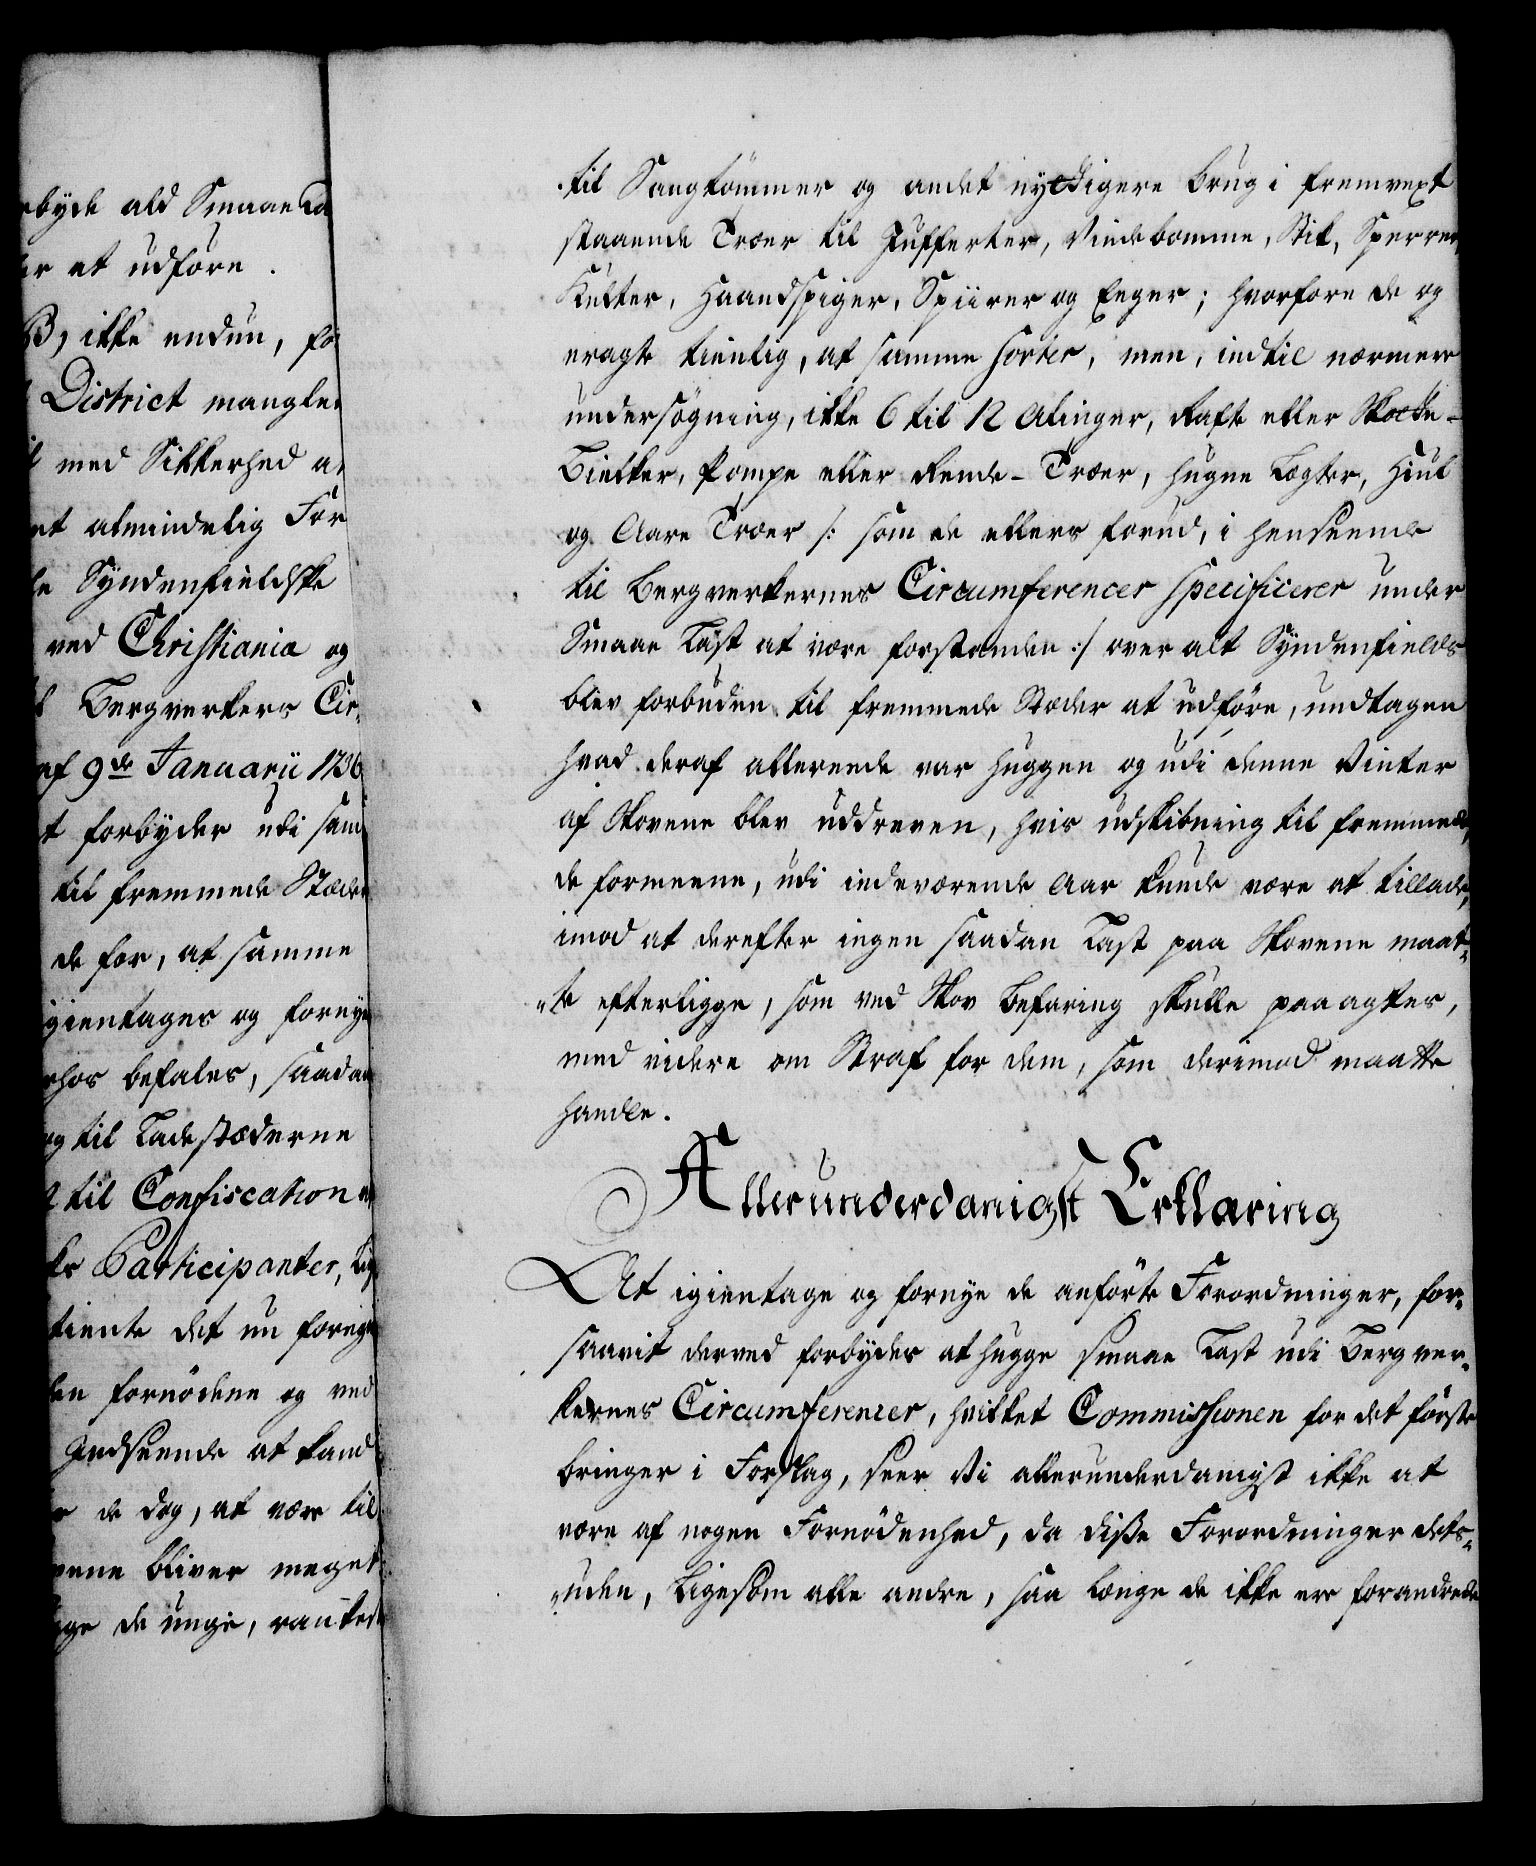 byde ald Smaae La
er at udføre.
ikke endnu, fo
District mangle
med Sikkerhed a
et almindelig For
Syndenfieldske
ved Christiania og
Bergverkers Cir-
af 9de Januarii 1736
forbyder udi sam
til fremmede Stæde
de for, at samme
igientages og forny
hos befales, saadan
og til Ladestæderne
til Confiscation
Participanter,
tiente det nu foreg
fornødene og ved
Indseende at kand
de dog, at være til
bliver meget
de unge, ranke
til Saugtømmer og andet nyttigere brug i fremvext
staaende Træer til Jufferter, Vindebomme, Stik, Sperrer
Kubter, Haandspiger, Spiirer og Eeger; hvorfore de og
eragte tienlig, at samme sorter, men, indtil nærmere
undersøgning, ikke 6 til 12 Alinger, Raft eller Skotte-
Bielker, Pompe eller Rende-Træer, hugne Legter, Hiul
og Aare Træer /: som de ellers forud, i henseende
til Bergverkernes Circumferencer specificerer under
Smaae Last at være forstanden :/ over alt Syndenfields
blev forbuden til fremmede Stæder at udføre, undtagen
hvad deraf allereede var huggen og udi denne Vinter
af Skovene blev uddreven, hvis udskibning til fremmede,
de formeene, udi indeværende Aar kunde være at tillade,
imod at derefter ingen saadan Last paa Skovene maat-
te efterligge, som ved Skov Befaring skulle paaagtes,
med videre om Straf for dem, som derimod maatte
handle.
Allerunderdanigst Erklæring
At igientage og fornye de anførte Forordninger, for-
saavit derved forbydes at hugge smaae Last udi Bergver-
kernes Circumferencer, hvilket Commissionen for det første
bringer i Forslag, seer Vi allerunderdanigst ikke at
være af nogen Fornødenhed, da disse Forordninger des-
uden, ligesom alle andre, saa længe de ikke ere forandrede